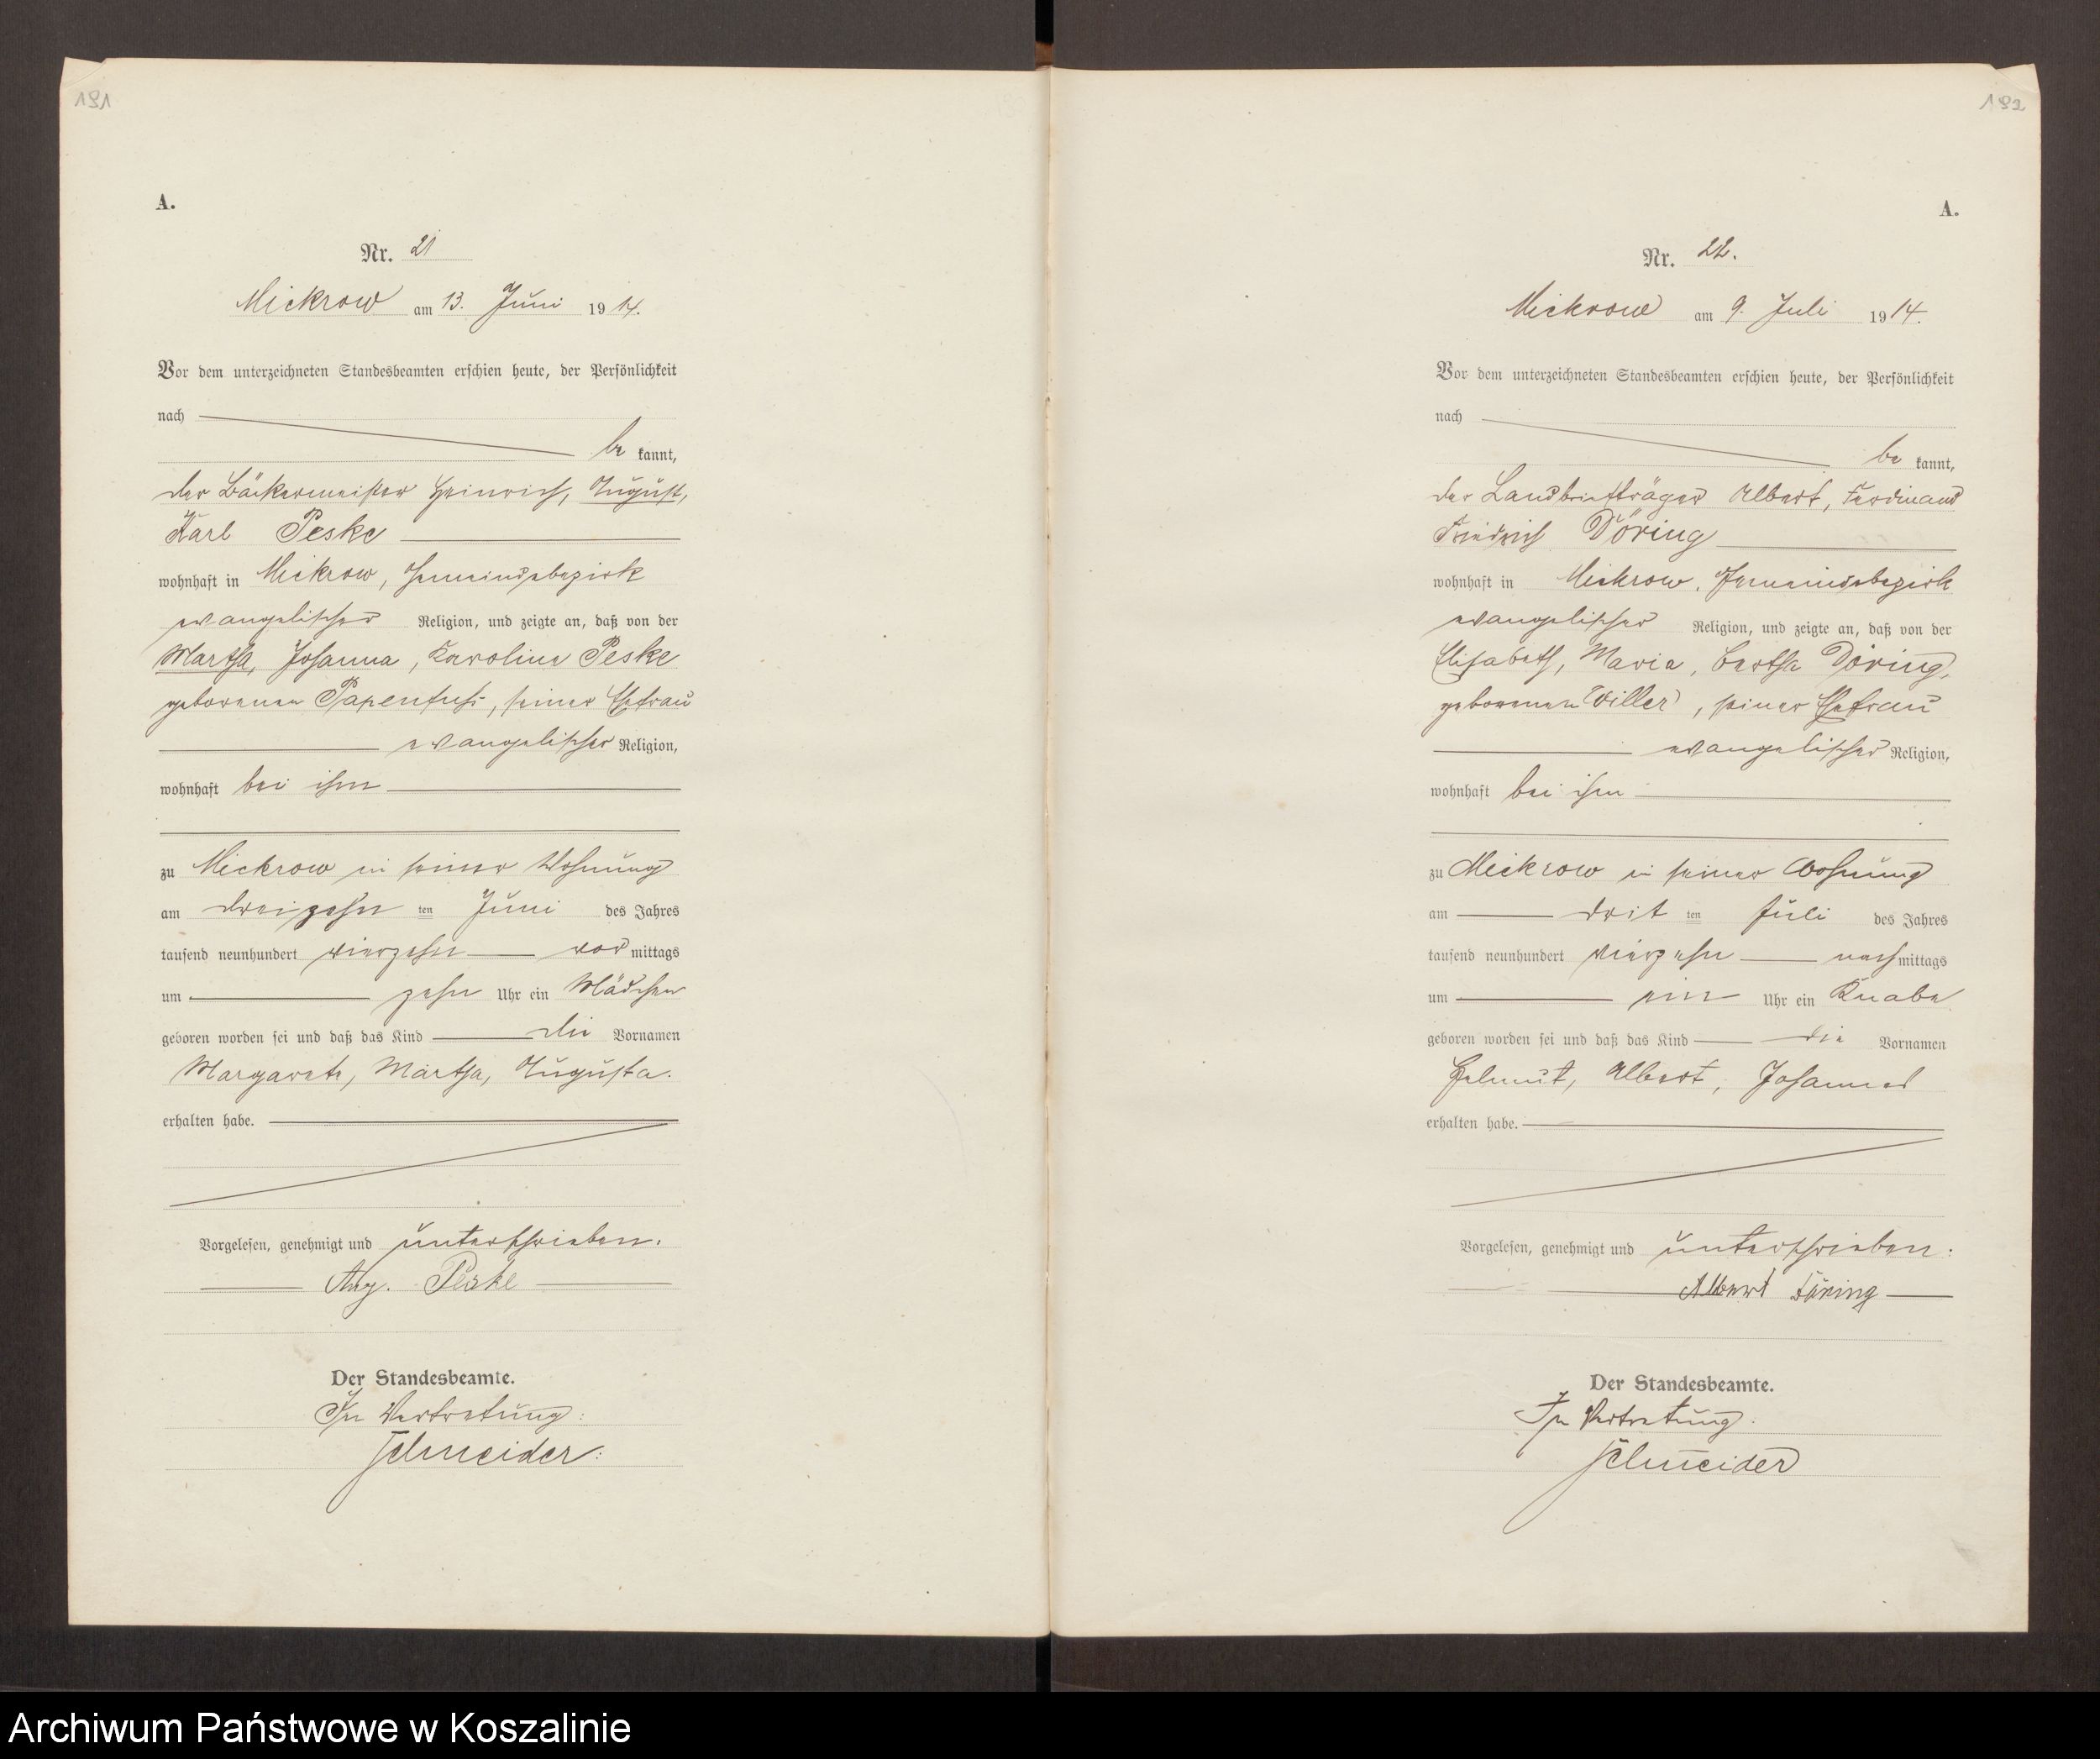 191
A.
Nr. 21
Mickrow am 13. Juni 1914.
Vor dem unterzeichneten Standesbeamten erschien heute, der Persönlichkeit
nach
be kannt,
der Bäckermeister Heinrich, August,
Karl Peske
wohnhaft in Mickrow, Gemeindebezirk
evangelischer Religion, und zeigte an, daß von der
Martha, Johanna, Karoline Peske
geborenen Papenfuß, seiner Ehefrau
evangelischer Religion,
wohnhaft bei ihm
zu Mickrow in seiner Wohnung
am dreizehn ten Juni des Jahres
tausend neunhundert vierzehn vor mittags
um zehn Uhr ein Mädchen
geboren worden sei und daß das Kind die Vornamen
Margarete, Martha, Augusta.
erhalten habe.
Vorgelesen, genehmigt und unterschrieben.
Aug. Peske
Der Standesbeamte.
In Vertretung:
Schneider.
192
A.
Nr. 22.
Mickrow am 9. Juli 1914.
Vor dem unterzeichneten Standesbeamten erschien heute, der Persönlichkeit
nach
be kannt,
der Landbriefträger Albert, Ferdinand
Friedrich Döring
wohnhaft in Mickrow, Gemeindebezirk
evangelischer Religion, und zeigte an, daß von der
Elisabeth, Maria, Bertha Döring,
geborenen Willer, seiner Ehefrau
evangelischer Religion,
wohnhaft bei ihm
zu Mickrow in seiner Wohnung
am drit ten Juli des Jahres
tausend neunhundert vierzehn nach mittags
um ein Uhr ein Knabe
geboren worden sei und daß das Kind die Vornamen
Helmut, Albert, Johannes
erhalten habe.
Vorgelesen, genehmigt und unterschrieben:
Albert Döring
Der Standesbeamte.
In Vertretung.
Schneider
Archiwum Państwowe w Koszalinie